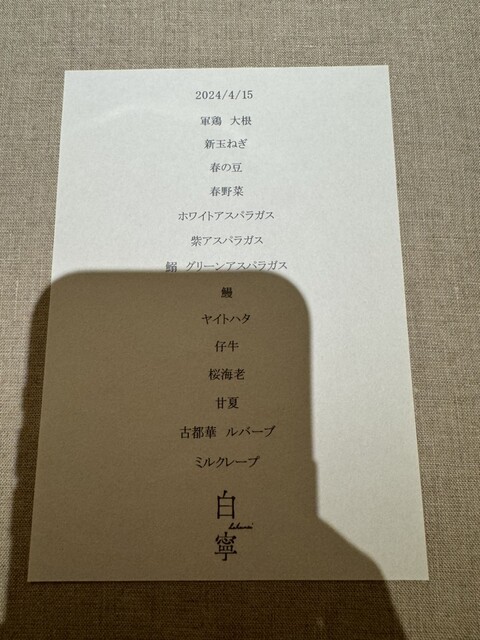 2024/4/15
軍鶏 大根
新玉ねぎ
春の豆
春野菜
ホワイトアスパラガス
紫アスパラガス
鰯 グリーンアスパラガス
鰻
ヤイトハタ
仔牛
桜海老
甘夏
古都華 ルバーブ
ミルクレープ
白
寧